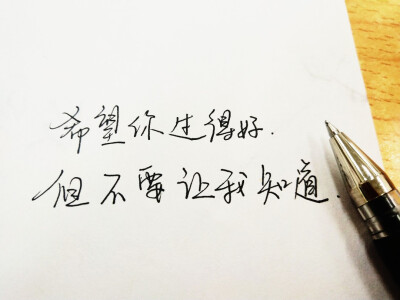 希望你过得好.
但不要让我知道.